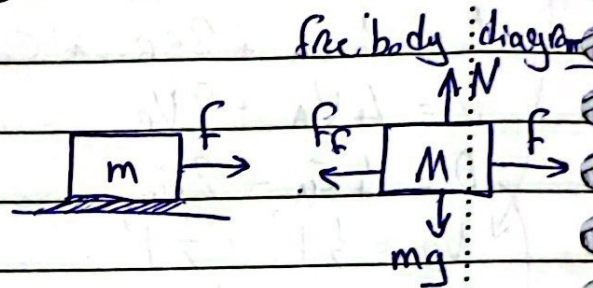 free body diagram
N
F Ff F
m M
mg